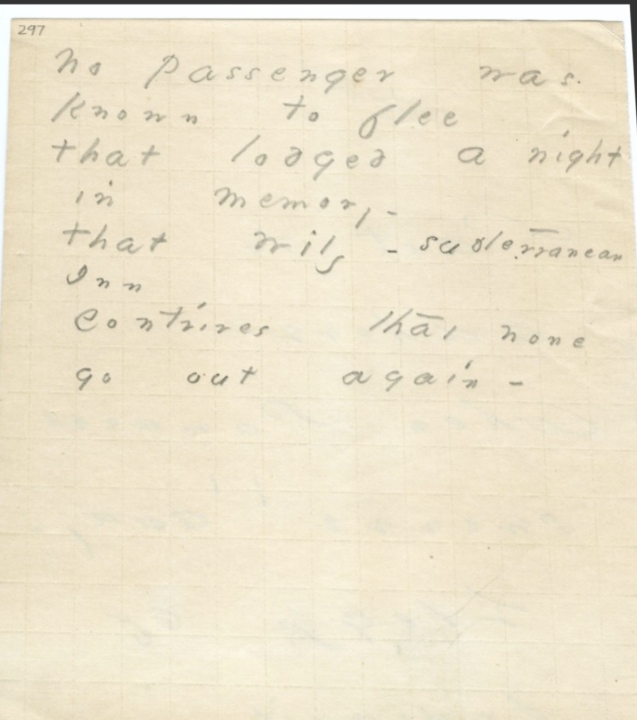 297
No Passenger was
known to flee
that lodged a night
in memory -
that wily - subterranean
Inn
Contrives that none
go out again -